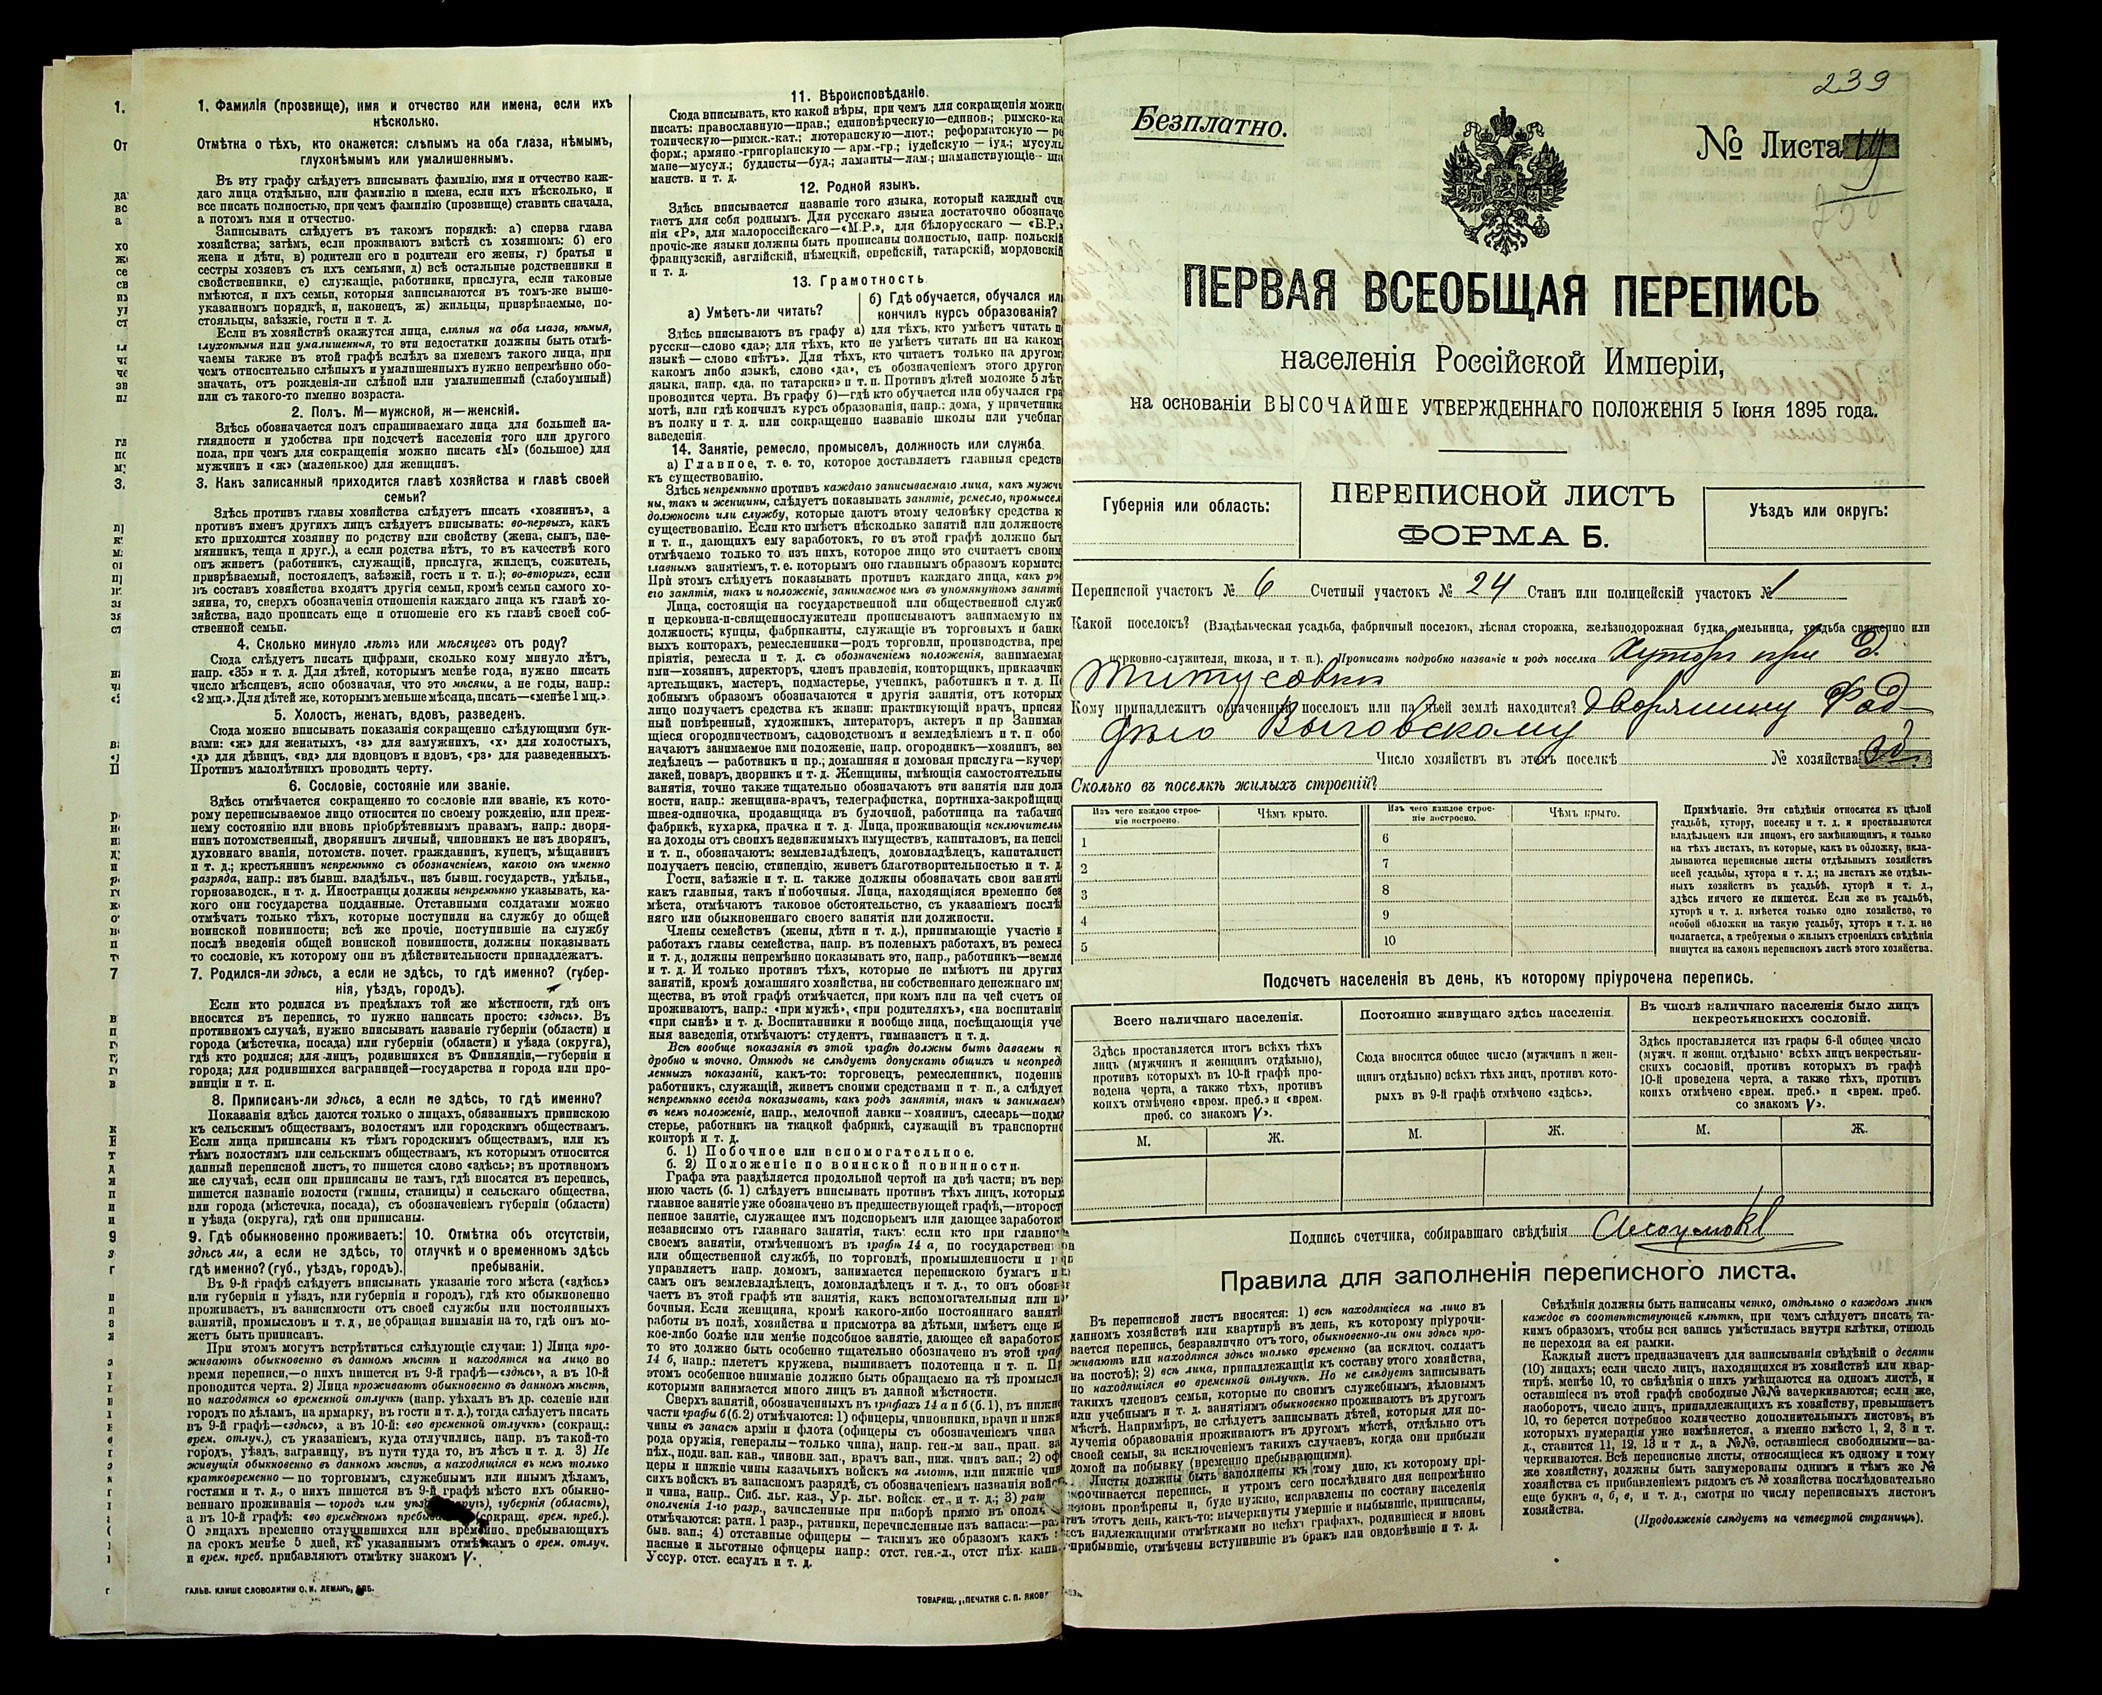 1. Фамилія (прозвище), имя и отчество или имена, если ихъ
нѣсколько.
Отмѣтка о тѣхъ, кто окажется: слѣпымъ на оба глаза, нѣмымъ,
глухонѣмымъ или умалишеннымъ.
Въ эту графу слѣдуетъ вписывать фамилію, имя и отчество каж-
даго лица отдѣльно, или фамилію и имена, если ихъ нѣсколько, и
все писать полностью, при чемъ фамилію (прозвище) ставить сначала,
а потомъ имя и отчество.
Записывать слѣдуетъ въ такомъ порядкѣ: а) сперва глава
хозяйства; затѣмъ, если проживаютъ вмѣстѣ съ хозяиномъ: б) его
жена и дѣти, в) родители его и родители его жены, г) братья и
сестры хозяевъ съ ихъ семьями, д) всѣ остальные родственники и
свойственники, е) служащіе, работники, прислуга, если таковые
имѣются, и ихъ семьи, которыя записываются въ томъ-же выше-
указанномъ порядкѣ, и, наконецъ, ж) жильцы, призрѣваемые, по-
стояльцы, заѣзжіе, гости и т. д.
Если въ хозяйствѣ окажутся лица, слѣпыя на оба глаза, нѣмыя,
глухонѣмыя или умалишенныя, то эти недостатки должны быть отмѣ-
чаемы также въ этой графѣ вслѣдъ за именемъ такого лица, при
чемъ относительно слѣпыхъ и умалишенныхъ нужно непремѣнно обо-
значать, отъ рожденія-ли слѣпой или умалишенный (слабоумный)
или съ такого-то именно возраста.
2. Полъ. М—мужской, ж—женскій.
Здѣсь обозначается полъ спрашиваемаго лица для большей на-
глядности и удобства при подсчетѣ населенія того или другого
пола, при чемъ для сокращенія можно писать «М» (большое) для
мужчинъ и «ж» (маленькое) для женщинъ.
3. Какъ записанный приходится главѣ хозяйства и главѣ своей
семьи?
Здѣсь противъ главы хозяйства слѣдуетъ писать «хозяинъ», а
противъ именъ другихъ лицъ слѣдуетъ вписывать: во-первыхъ, какъ
кто приходится хозяину по родству или свойству (жена, сынъ, пле-
мянникъ, теща и друг.), а если родства нѣтъ, то въ качествѣ кого
онъ живетъ (работникъ, служащій, прислуга, жилецъ, сожитель,
призрѣваемый, постоялецъ, заѣзжій, гость и т. п.); во-вторыхъ, если
въ составъ хозяйства входятъ другія семьи, кромѣ семьи самого хо-
зяина, то, сверхъ обозначенія отношенія каждаго лица къ главѣ хо-
зяйства, надо прописать еще и отношеніе его къ главѣ своей соб-
ственной семьи.
4. Сколько минуло лѣтъ или мѣсяцевъ отъ роду?
Сюда слѣдуетъ писать цифрами, сколько кому минуло лѣтъ,
напр. «35» и т. д. Для дѣтей, которымъ менѣе года, нужно писать
число мѣсяцевъ, ясно обозначая, что это мѣсяцы, а не годы, напр.:
«2 мц.». Для дѣтей же, которымъ меньше мѣсяца, писать—«менѣе 1 мц.».
5. Холостъ, женатъ, вдовъ, разведенъ.
Сюда можно вписывать показанія сокращенно слѣдующими бук-
вами: «ж» для женатыхъ, «з» для замужнихъ, «х» для холостыхъ,
«д» для дѣвицъ, «вд» для вдовцовъ и вдовъ, «рз» для разведенныхъ.
Противъ малолѣтнихъ проводить черту.
6. Сословіе, состояніе или званіе.
Здѣсь отмѣчается сокращенно то сословіе или званіе, къ кото-
рому переписываемое лицо относится по своему рожденію, или преж-
нему состоянію или вновь пріобрѣтеннымъ правамъ, напр.: дворя-
нинъ потомственный, дворянинъ личный, чиновникъ не изъ дворянъ,
духовнаго званія, потомств. почет. гражданинъ, купецъ, мѣщанинъ
и т. д.; крестьянинъ непремѣнно съ обозначеніемъ, какого онъ именно
разряда, напр.: изъ бывш. владѣльч., изъ бывш. государств., удѣльн.,
горнозаводск., и т. д. Иностранцы должны непремѣнно указывать, ка-
кого они государства подданные. Отставными солдатами можно
отмѣчать только тѣхъ, которые поступили на службу до общей
воинской повинности; всѣ же прочіе, поступившіе на службу
послѣ введенія общей воинской повинности, должны показывать
то сословіе, къ которому они въ дѣйствительности принадлежатъ.
7. Родился-ли здѣсь, а если не здѣсь, то гдѣ именно? (губер-
нія, уѣздъ, городъ).
Если кто родился въ предѣлахъ той же мѣстности, гдѣ онъ
вносится въ перепись, то нужно написать просто: «здѣсь». Въ
противномъ случаѣ, нужно вписывать названіе губерніи (области) и
города (мѣстечка, посада) или губерніи (области) и уѣзда (округа),
гдѣ кто родился; для лицъ, родившихся въ Финляндіи,—губерніи и
города; для родившихся заграницей—государства и города или про-
винціи и т. п.
8. Приписанъ-ли здѣсь, а если не здѣсь, то гдѣ именно?
Показанія здѣсь даются только о лицахъ, обязанныхъ припискою
къ сельскимъ обществамъ, волостямъ или городскимъ обществамъ.
Если лица приписаны къ тѣмъ городскимъ обществамъ, или къ
тѣмъ волостямъ или сельскимъ обществамъ, къ которымъ относится
данный переписной листъ, то пишется слово «здѣсь»; въ противномъ
же случаѣ, если они приписаны не тамъ, гдѣ вносятся въ перепись,
пишется названіе волости (гмины, станицы) и сельскаго общества,
или города (мѣстечка, посада), съ обозначеніемъ губерніи (области)
и уѣзда (округа), гдѣ они приписаны.
9. Гдѣ обыкновенно проживаетъ:
здѣсь ли, а если не здѣсь, то
гдѣ именно? (губ., уѣздъ, городъ).
10. Отмѣтка объ отсутствіи,
отлучкѣ и о временномъ здѣсь
пребываніи.
Въ 9-й графѣ слѣдуетъ вписывать указаніе того мѣста («здѣсь»
или губернія и уѣздъ, или губернія и городъ), гдѣ кто обыкновенно
проживаетъ, въ зависимости отъ своей службы или постоянныхъ
занятій, промысловъ и т. д., не обращая вниманія на то, гдѣ онъ мо-
жетъ быть приписанъ.
При этомъ могутъ встрѣтиться слѣдующіе случаи: 1) Лица про-
живаютъ обыкновенно въ данномъ мѣстѣ и находятся на лицо во
время переписи,—о нихъ пишется въ 9-й графѣ—«здѣсь», а въ 10-й
проводится черта. 2) Лица проживаютъ обыкновенно въ данномъ мѣстѣ,
но находятся во временной отлучкѣ (напр. уѣхалъ въ др. селеніе или
городъ по дѣламъ, на ярмарку, въ гости и т. д.), тогда слѣдуетъ писать
въ 9-й графѣ—«здѣсь», а въ 10-й: «во временной отлучкѣ» (сокращ.:
врем. отлуч.), съ указаніемъ, куда отлучились, напр. въ такой-то
городъ, уѣздъ, заграницу, въ пути туда то, въ лѣсъ и т. д. 3) Не
живущія обыкновенно въ данномъ мѣстѣ, а находящіяся въ немъ только
кратковременно — по торговымъ, служебнымъ или инымъ дѣламъ,
гостями и т. д., о нихъ пишется въ 9-й графѣ мѣсто ихъ обыкно-
веннаго проживанія — городъ или губернія (область),
а въ 10-й графѣ: «во временномъ (сокращ. врем. преб.).
О лицахъ временно отлучившихся или временно пребывающихъ
на срокъ менѣе 5 дней, къ указаннымъ отмѣткамъ о врем. отлуч.
и врем. преб. прибавляютъ отмѣтку знакомъ V.
ГАЛЬВ. КЛИШЕ СЛОВОЛИТНИ О. И. ЛЕМАНЪ, СПБ.
11. Вѣроисповѣданіе.
Сюда вписывать, кто какой вѣры, при чемъ для сокращенія можно
писать: православную—прав.; единовѣрческую—единов.; римско-ка
толическую—римск.-кат.; лютеранскую—лют.; реформатскую — ре
форм.; армяно-григоріанскую — арм.-гр.; іудейскую — іуд.; мусуль
мане—мусул.; буддисты—буд.; ламаиты—лам.; шаманствующіе— ша
манств. и т. д.
12. Родной языкъ.
Здѣсь вписывается названіе того языка, который каждый счи
таетъ для себя роднымъ. Для русскаго языка достаточно обозначе
нія «Р», для малороссійскаго—«М.Р.», для бѣлорусскаго — «Б.Р.»
прочіе-же языки должны быть прописаны полностью, напр. польскій
французскій, англійскій, нѣмецкій, еврейскій, татарскій, мордовскій
и т. д.
13. Грамотность
а) Умѣетъ-ли читать?
б) Гдѣ обучается, обучался или
кончилъ курсъ образованія?
Здѣсь вписываютъ въ графу а) для тѣхъ, кто умѣетъ читать по
русски—слово «да»; для тѣхъ, кто не умѣетъ читать ни на какомъ
языкѣ — слово «нѣтъ». Для тѣхъ, кто читаетъ только на другомъ
какомъ либо языкѣ, слово «да», съ обозначеніемъ этого другого
языка, напр. «да, по татарски» и т. п. Противъ дѣтей моложе 5 лѣт
проводится черта. Въ графу б)—гдѣ кто обучается или обучался гра
мотѣ, или гдѣ кончилъ курсъ образованія, напр.: дома, у причетника
въ полку и т. д. или сокращенно названіе школы или учебнаг
заведенія.
14. Занятіе, ремесло, промыселъ, должность или служба.
а) Главное, т. е. то, которое доставляетъ главныя средств
къ существованію.
Здѣсь непремѣнно противъ каждаго записываемаго лица, какъ мужчи
ны, такъ и женщины, слѣдуетъ показывать занятіе, ремесло, промысел
должность или службу, которые даютъ этому человѣку средства к
существованію. Если кто имѣетъ нѣсколько занятій или должносте
и т. п., дающихъ ему заработокъ, то въ этой графѣ должно быт
отмѣчаемо только то изъ нихъ, которое лицо это считаетъ своим
главнымъ занятіемъ, т. е. которымъ оно главнымъ образомъ кормитс
При этомъ слѣдуетъ показывать противъ каждаго лица, какъ ро
его занятія, такъ и положеніе, занимаемое имъ въ упомянутомъ заняті
Лица, состоящія на государственной или общественной служб
и церковно-и-священнослужители прописываютъ занимаемую им
должность; купцы, фабриканты, служащіе въ торговыхъ и банк
выхъ конторахъ, ремесленники—родъ торговли, производства, пре
пріятія, ремесла и т. д. съ обозначеніемъ положенія, занимаемаг
ими—хозяинъ, директоръ, членъ правленія, конторщикъ, приказчик
артельщикъ, мастеръ, подмастерье, ученикъ, работникъ и т. д. П
добнымъ образомъ обозначаются и другія занятія, отъ которых
лицо получаетъ средства къ жизни: практикующій врачъ, присяж
ный повѣренный, художникъ, литераторъ, актеръ и пр. Занимаю
щіеся огородничествомъ, садоводствомъ и земледѣліемъ и т. п. обо
начаютъ занимаемое ими положеніе, напр. огородникъ—хозяинъ, зем
ледѣлецъ — работникъ и пр.; домашняя и домовая прислуга—кучеръ
лакей, поваръ, дворникъ и т. д. Женщины, имѣющія самостоятельны
занятія, точно также тщательно обозначаютъ эти занятія или долж
ности, напр.: женщина-врачъ, телеграфистка, портниха-закройщиц
швея-одиночка, продавщица въ булочной, работница на табачно
фабрикѣ, кухарка, прачка и т. д. Лица, проживающія исключитель
на доходы отъ своихъ недвижимыхъ имуществъ, капиталовъ, на пенсі
и т. п., обозначаютъ: землевладѣлецъ, домовладѣлецъ, капиталистъ
получаетъ пенсію, стипендію, живетъ благотворительностью и т. д
Гости, заѣзжіе и т. п. также должны обозначать свои занятія
какъ главныя, такъ и побочныя. Лица, находящіяся временно без
мѣста, отмѣчаютъ таковое обстоятельство, съ указаніемъ послѣ
няго или обыкновеннаго своего занятія или должности.
Члены семействъ (жены, дѣти и т. д.), принимающіе участіе в
работахъ главы семейства, напр. въ полевыхъ работахъ, въ ремесл
и т. д., должны непремѣнно показывать это, напр., работникъ—земле
и т. д. И только противъ тѣхъ, которые не имѣютъ ни других
занятій, кромѣ домашняго хозяйства, ни собственнаго денежнаго им
щества, въ этой графѣ отмѣчается, при комъ или на чей счетъ он
проживаютъ, напр.: «при мужѣ», «при родителяхъ», «на воспитаніи
«при сынѣ» и т. д. Воспитанники и вообще лица, посѣщающія уче
ныя заведенія, отмѣчаютъ: студентъ, гимназистъ и т. д.
Всѣ вообще показанія въ этой графѣ должны быть даваемы п
дробно и точно. Отнюдь не слѣдуетъ допускать общихъ и неопред
ленныхъ показаній, какъ-то: торговецъ, ремесленникъ, поденны
работникъ, служащій, живетъ своими средствами и т. п., а слѣдует
непремѣнно всегда показывать, какъ родъ занятія, такъ и занимаем
въ немъ положеніе, напр., мелочной лавки — хозяинъ, слесарь—подм
стерье, работникъ на ткацкой фабрикѣ, служащій въ транспортно
конторѣ и т. д.
б. 1) Побочное или вспомогательное.
б. 2) Положеніе по воинской повинности.
Графа эта раздѣляется продольной чертой на двѣ части; въ вер
нюю часть (б. 1) слѣдуетъ вписывать противъ тѣхъ лицъ, которых
главное занятіе уже обозначено въ предшествующей графѣ,—второст
пенное занятіе, служащее имъ подспорьемъ или дающее заработок
независимо отъ главнаго занятія, такъ: если кто при главно
своемъ занятіи, отмѣченномъ въ графѣ 14 а, по государствен
или общественной службѣ, по торговлѣ, промышленности и
управляетъ напр. домомъ, занимается перепискою бумагъ и
самъ онъ землевладѣлецъ, домовладѣлецъ и т. д., то онъ обозн
чаетъ въ этой графѣ эти занятія, какъ вспомогательныя или п
бочныя. Если женщина, кромѣ какого-либо постояннаго заняті
работы въ полѣ, хозяйства и присмотра за дѣтьми, имѣетъ еще к
кое-либо болѣе или менѣе подсобное занятіе, дающее ей заработок
то это должно быть особенно тщательно обозначено въ этой граф
14 б, напр.: плететъ кружева, вышиваетъ полотенца и т. п. П
этомъ особенное вниманіе должно быть обращаемо на тѣ промысл
которыми занимается много лицъ въ данной мѣстности.
Сверхъ занятій, обозначенныхъ въ графахъ 14 а и б (б. 1), въ нижн
части графы б (б. 2) отмѣчаются: 1) офицеры, чиновники, врачи и нижн
чины въ запасѣ арміи и флота (офицеры съ обозначеніемъ чина
рода оружія, генералы—только чина), напр. ген-м зап., прап. за
пѣх., подп. зап. кав., чиновн. зап., врачъ зап., ниж. чинъ зап.; 2) оф
церы и нижніе чины казачьихъ войскъ на льготѣ, или нижніе чин
сихъ войскъ въ запасномъ разрядѣ, съ обозначеніемъ названія войс
и чина, напр. Сиб. льг. каз., Ур. льг. войск. ст., и т. д.; 3) рат
ополченія 1-го разр., зачисленные при наборѣ прямо въ опол
отмѣчаются: ратн. 1 разр., ратники, перечисленные изъ запаса:—ра
быв. зап.; 4) отставные офицеры — такимъ же образомъ какъ з
пасные и льготные офицеры напр.: отст. ген.-л., отст пѣх. капи
Уссур. отст. есаулъ и т. д.
ТОВАРИЩ. „ПЕЧАТНЯ С. П. ЯКОВ
239
Безплатно.
№ Листа 14
ПЕРВАЯ ВСЕОБЩАЯ ПЕРЕПИСЬ
населенія Россійской Имперіи,
на основаніи ВЫСОЧАЙШЕ УТВЕРЖДЕННАГО ПОЛОЖЕНІЯ 5 Іюня 1895 года.
Губернія или область:
ПЕРЕПИСНОЙ ЛИСТЪ
ФОРМА Б.
Уѣздъ или округъ:
Переписной участокъ № 6 Счетный участокъ № 24 Станъ или полицейскій участокъ № 1
Какой поселокъ? (Владѣльческая усадьба, фабричный поселокъ, лѣсная сторожка, желѣзнодорожная будка, мельница, усадьба священно или
церковно-служителя, школа, и т. п.). Прописать подробно названіе и родъ поселка Хуторъ при д.
Титусовки
Кому принадлежитъ означенный поселокъ или на чьей землѣ находится? дворянину Фад-
дѣю Выговскому
Число хозяйствъ въ этомъ поселкѣ № хозяйства
Сколько въ поселкѣ жилыхъ строеній?
Изъ чего каждое строе-
ніе построено.
Чѣмъ крыто.
Изъ чего каждое строе-
ніе построено.
Чѣмъ крыто.
1 6
2 7
3 8
4 9
5 10
Примѣчаніе. Эти свѣдѣнія относятся къ цѣлой
усадьбѣ, хутору, поселку и т. д. и проставляются
владѣльцемъ или лицомъ, его замѣняющимъ, и только
на тѣхъ листахъ, въ которые, какъ въ обложку, вкла-
дываются переписные листы отдѣльныхъ хозяйствъ
всей усадьбы, хутора и т. д.; на листахъ же отдѣль-
ныхъ хозяйствъ въ усадьбѣ, хуторѣ и т. д.,
здѣсь ничего не пишется. Если же въ усадьбѣ,
хуторѣ и т. д. имѣется только одно хозяйство, то
особой обложки на такую усадьбу, хуторъ и т. д. не
полагается, а требуемыя о жилыхъ строеніяхъ свѣдѣнія
пишутся на самомъ переписномъ листѣ этого хозяйства.
Подсчетъ населенія въ день, къ которому пріурочена перепись.
Всего наличнаго населенія.
Здѣсь проставляется итогъ всѣхъ тѣхъ
лицъ (мужчинъ и женщинъ отдѣльно),
противъ которыхъ въ 10-й графѣ про-
ведена черта, а также тѣхъ, противъ
коихъ отмѣчено «врем. преб.» и «врем.
преб. со знакомъ V».
М. Ж.
Постоянно живущаго здѣсь населенія.
Сюда вносится общее число (мужчинъ и жен-
щинъ отдѣльно) всѣхъ тѣхъ лицъ, противъ кото-
рыхъ въ 9-й графѣ отмѣчено «здѣсь».
М. Ж.
Въ числѣ наличнаго населенія было лицъ
некрестьянскихъ сословій.
Здѣсь проставляется изъ графы 6-й общее число
(мужч. и женщ. отдѣльно) всѣхъ лицъ некрестьян-
скихъ сословій, противъ которыхъ въ графѣ
10-й проведена черта, а также тѣхъ, противъ
коихъ отмѣчено «врем. преб.» и «врем. преб.
со знакомъ V».
М. Ж.
Подпись счетчика, собиравшаго свѣдѣнія
Правила для заполненія переписного листа.
Въ переписной листъ вносятся: 1) всѣ находящіеся на лицо въ
данномъ хозяйствѣ или квартирѣ въ день, къ которому пріурочи-
вается перепись, безразлично отъ того, обыкновенно-ли они здѣсь про-
живаютъ или находятся здѣсь только временно (за исключ. солдатъ
на постоѣ); 2) всѣ лица, принадлежащія къ составу этого хозяйства,
но находящіяся во временной отлучкѣ. Но не слѣдуетъ записывать
такихъ членовъ семьи, которые по своимъ служебнымъ, дѣловымъ
или учебнымъ и т. д. занятіямъ обыкновенно проживаютъ въ другомъ
мѣстѣ. Напримѣръ, не слѣдуетъ записывать дѣтей, которыя для по-
лученія образованія проживаютъ въ другомъ мѣстѣ, отдѣльно отъ
своей семьи, за исключеніемъ такихъ случаевъ, когда они прибыли
домой на побывку (временно пребывающими).
Листы должны быть заполнены къ тому дню, къ которому прі-
урочивается перепись, и утромъ сего послѣдняго дня непремѣнно
вновь провѣрены и, буде нужно, исправлены по составу населенія
въ этотъ день, какъ-то: вычеркнуты умершіе и выбывшіе, приписаны,
съ надлежащими отмѣтками во всѣхъ графахъ, родившіеся и вновь
прибывшіе, отмѣчены вступившіе въ бракъ или овдовѣвшіе и т. д.
Свѣдѣнія должны быть написаны четко, отдѣльно о каждомъ лицѣ
каждое въ соотвѣтствующей клѣткѣ, при чемъ слѣдуетъ писать та-
кимъ образомъ, чтобы вся запись умѣстилась внутри клѣтки, отнюдь
не переходя за ея рамки.
Каждый листъ предназначенъ для записыванія свѣдѣній о десяти
(10) лицахъ; если число лицъ, находящихся въ хозяйствѣ или квар-
тирѣ, менѣе 10, то свѣдѣнія о нихъ умѣщаются на одномъ листѣ, и
оставшіеся въ этой графѣ свободные №№ зачеркиваются; если же,
наоборотъ, число лицъ, принадлежащихъ къ хозяйству, превышаетъ
10, то берется потребное количество дополнительныхъ листовъ, въ
которыхъ нумерація уже измѣняется, а именно вмѣсто 1, 2, 3 и т.
д., ставится 11, 12, 13 и т д., а №№, оставшіеся свободными—за-
черкиваются. Всѣ переписные листы, относящіеся къ одному и тому
же хозяйству, должны быть занумерованы однимъ и тѣмъ же №
хозяйства съ прибавленіемъ рядомъ съ № хозяйства послѣдовательно
еще буквъ а, б, в, и т. д., смотря по числу переписныхъ листовъ
хозяйства.
(Продолженіе слѣдуетъ на четвертой страницѣ).